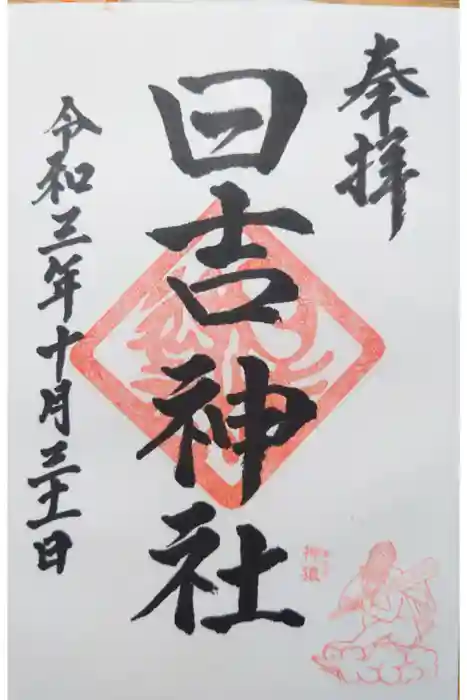 奉拝
日吉神社
令和三年十月三十一日
神猿